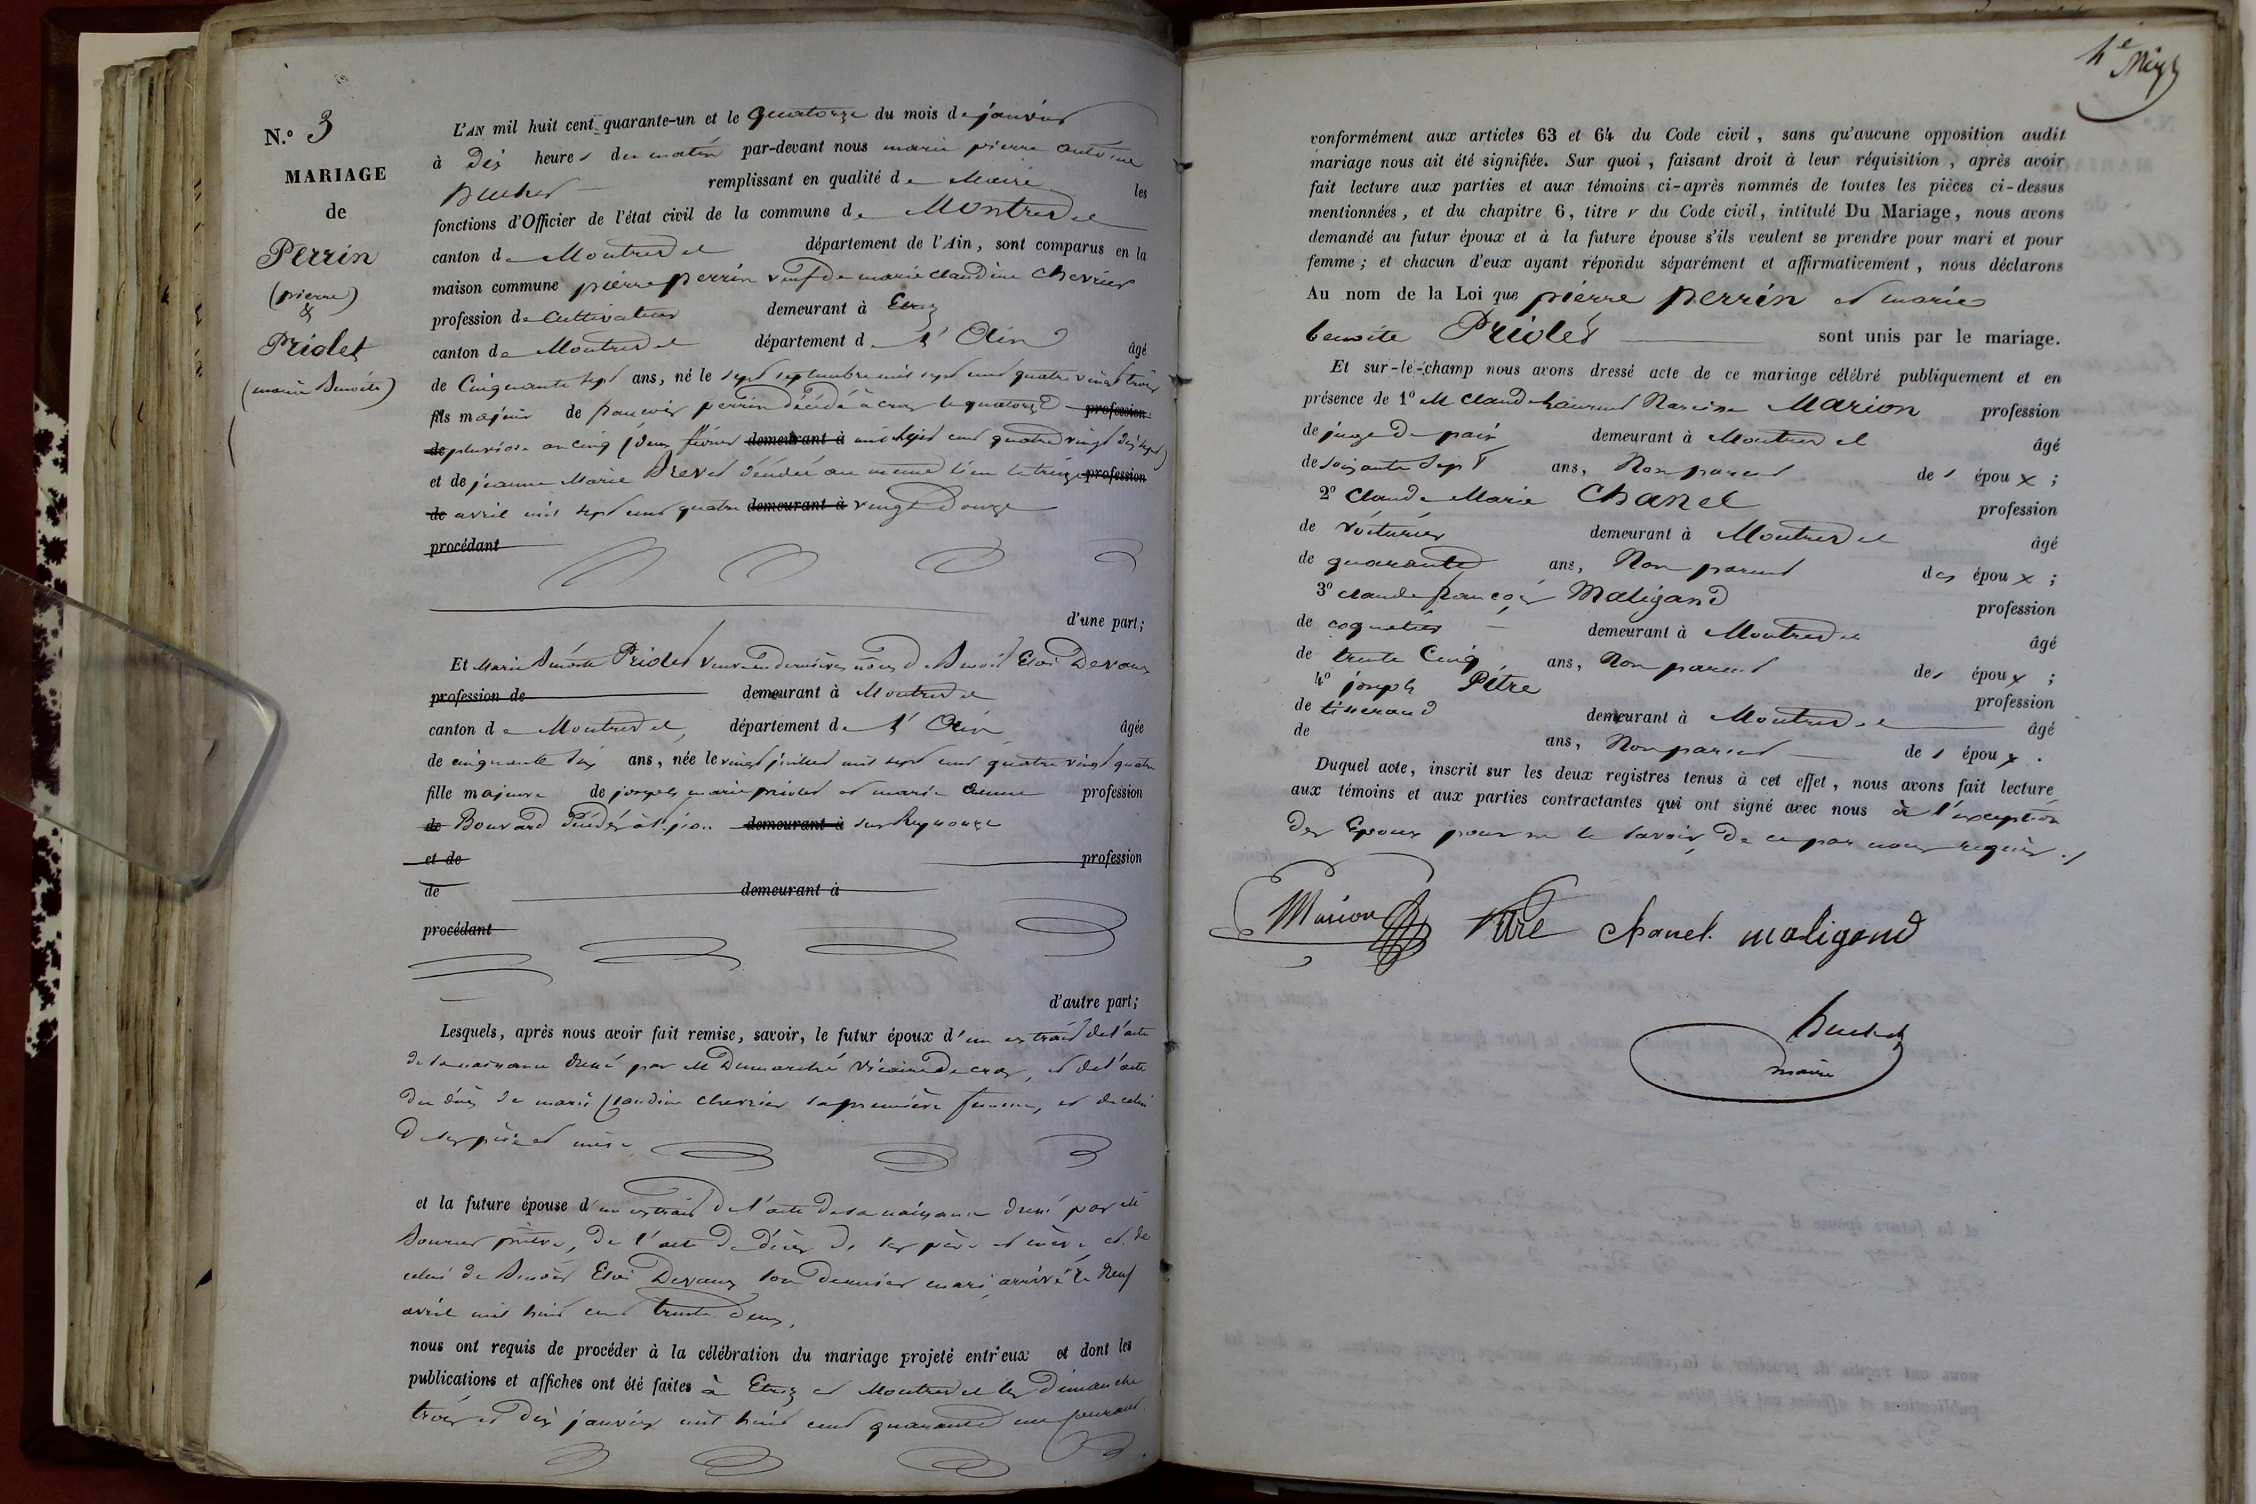 N.º 3
MARIAGE
de
Perrin
(pierre)
&
Priolet
(marie Benoite)
L'AN mil huit cent quarante-un et le quatorze du mois de janvier
à dix heures du matin par-devant nous marie pierre antoine
huchet remplissant en qualité de Maire les
fonctions d'Officier de l'état civil de la commune de Montrevel
canton de Montrevel département de l'Ain, sont comparus en la
maison commune pierre perrin veuf de marie claudine chevrier
profession de Cultivateur demeurant à Etrez
canton de Montrevel département de l'Ain âgé
de Cinquante sept ans, né le sept septembre mil sept cent quatre vingt trois
fils majeur de francois perrin décédé à cras le quatorze profession
de pluviose an cinq (deux février demeurant à mil sept cent quatre vingt dix sept)
et de jeanne Marie Brevet décédée au même lieu le treize profession
de avril mil sept cent quatre demeurant à vingt Douze
procédant
d'une part;
Et Marie Benoite Priolet veuve en dernières noces de Benoit Eloi Devaux
profession de demeurant à Montrevel
canton de Montrevel, département de l'Ain âgée
de cinquante six ans, née le vingt juillet mil sept cent quatre vingt quatre
fille majeure de joseph marie priolet et marie profession
de Bouvard Décédés à St jean demeurant à sur Reyssouze
et de profession
de demeurant à
procédant
d'autre part;
Lesquels, après nous avoir fait remise, savoir, le futur époux d'un extrait de l'acte
de sa naissance par M Dumarché vicaire de cras, et de l'acte
du décès de marie Claudine chevrier sa première femme, et de celui
de ses père et mère
et la future épouse d'un extrait de l'acte de sa naissance par M
prêtre, de l'acte de décès de ses père et mère et de
celui de Benoit Eloi Devaux son dernier mari arrivé le Neuf
avril mil huit cent trente deux,
nous ont requis de procéder à la célébration du mariage projeté entr'eux et dont les
publications et affiches ont été faites à Etrez et Montrevel les dimanche
trois et dix janvier mil huit cent quarante un courant.
4e
conformément aux articles 63 et 64 du Code civil, sans qu'aucune opposition audit
mariage nous ait été signifiée. Sur quoi, faisant droit à leur réquisition, après avoir
fait lecture aux parties et aux témoins ci-après nommés de toutes les pièces ci-dessus
mentionnées, et du chapitre 6, titre v du Code civil, intitulé Du Mariage, nous avons
demandé au futur époux et à la future épouse s'ils veulent se prendre pour mari et pour
femme; et chacun d'eux ayant répondu séparément et affirmativement, nous déclarons
Au nom de la Loi que pierre perrin et marie
benoite Priolet sont unis par le mariage.
Et sur-le-champ nous avons dressé acte de ce mariage célébré publiquement et en
présence de 1º M Claude Laurent Narcisse Marion profession
de juge de paix demeurant à Montrevel âgé
de soixante sept ans, Non parent des époux;
2º Claude Marie Chanel profession
de voiturier demeurant à Montrevel âgé
de quarante ans, Non parent des époux;
3º claude françois Maligand profession
de coquetier demeurant à Montrevel âgé
de trente Cinq ans, Non parent des époux;
4º joseph Pitre profession
de tisserand demeurant à Montrevel âgé
de ans, Non parent des époux.
Duquel acte, inscrit sur les deux registres tenus à cet effet, nous avons fait lecture
aux témoins et aux parties contractantes qui ont signé avec nous à l'exception
des Epoux pour ne le savoir de ce par nous requis./
Marion Pitre chanel. maligand
huchet
maire